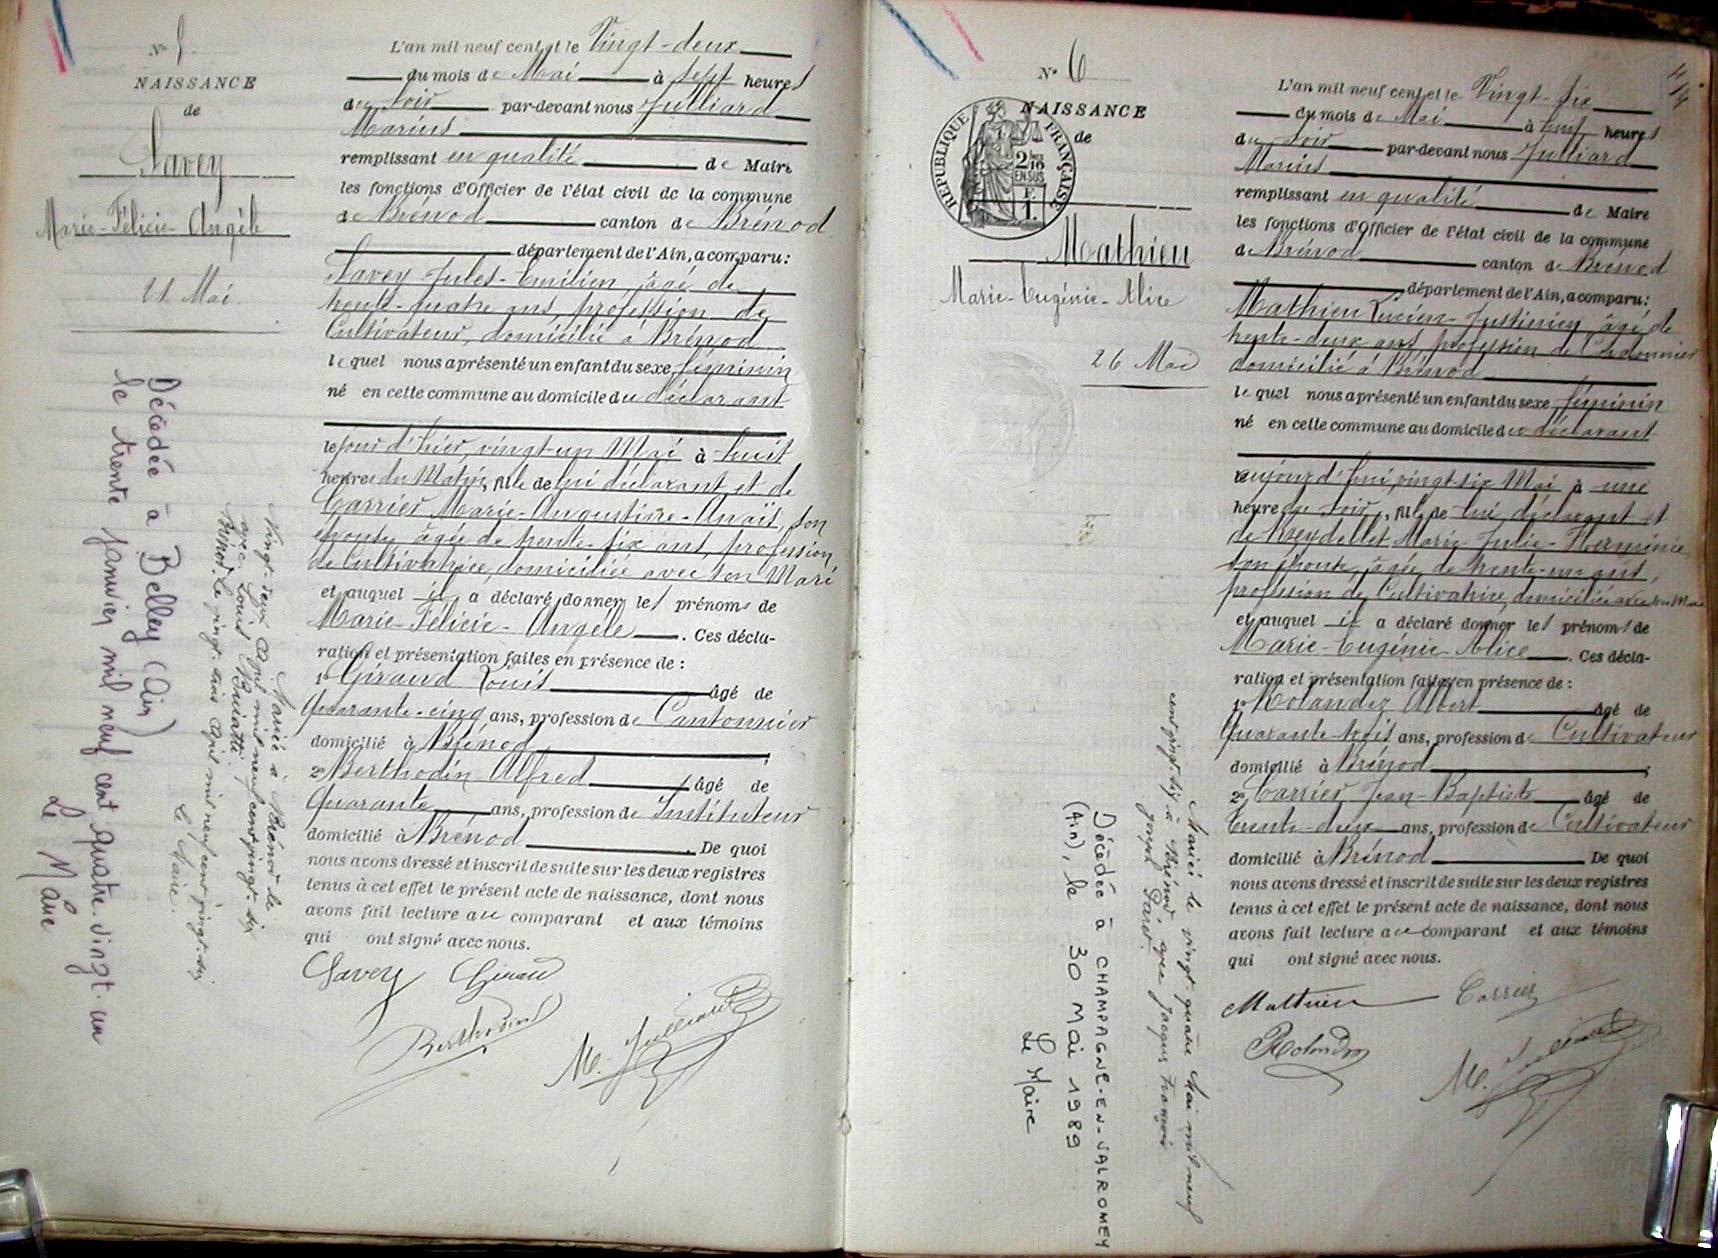 N° 5
NAISSANCE
de
Savey
Marie-Félicie-Angèle
21 Mai
Mariée à Brénod le
vingt-deux Avril mil neuf cent vingt-six
avec Louis Buiatti
Brénod le vingt-cinq Avril mil neuf cent vingt-six
Le Maire.
Décédée à Belley (Ain)
le trente janvier mil neuf cent quatre-vingt-un
Le Maire
L'an mil neuf cent et le Vingt-deux
du mois de Mai à sept heures
du soir par-devant nous Julliard
Marius
remplissant en qualité de Maire
les fonctions d'Officier de l'état civil de la commune
de Brénod canton de Brénod
département de l'Ain, a comparu:
Savey Jules-Emilien, âgé de
trente-quatre ans, profession de
Cultivateur, domicilié à Brénod
lequel nous a présenté un enfant du sexe féminin
né en cette commune au domicile du déclarant
le jour d'hier, vingt-un Mai à huit
heures du Matin, fille de lui déclarant et de
Carrier Marie-Augustine-Anaïs, son
épouse âgée de trente-six ans, profession
de Cultivatrice, domiciliée avec son Mari
et auquel il a déclaré donner les prénoms de
Marie-Félicie-Angèle. Ces décla-
ration et présentation faites en présence de :
1° Giraud Louis âgé de
Quarante-cinq ans, profession de Cantonnier
domicilié à Brénod ;
2° Berthodin Alfred âgé de
Quarante ans, profession de Instituteur
domicilié à Brénod. De quoi
nous avons dressé et inscrit de suite sur les deux registres
tenus à cet effet le présent acte de naissance, dont nous
avons fait lecture au comparant et aux témoins
qui ont signé avec nous.
Savey Giraud
Berthodin
M. Julliard
N° 6
NAISSANCE
de
RÉPUBLIQUE FRANÇAISE
2/10
EN SUS
Mathieu
Marie-Eugénie-Alice
26 Mai
Mariée le vingt-quatre Mai mil neuf
cent vingt-six à Brénod avec Jacques François
Joseph
Décédée à CHAMPAGNE-EN-VALROMEY
(Ain), le 30 Mai 1989
Le Maire
L'an mil neuf cent et le Vingt-six
du mois de Mai à huit heures
du soir par-devant nous Julliard
Marius
remplissant en qualité de Maire
les fonctions d'Officier de l'état civil de la commune
de Brénod canton de Brénod
département de l'Ain, a comparu:
Mathieu Lucien-Justinien, âgé de
trente-deux ans profession de Cordonnier
domicilié à Brénod
lequel nous a présenté un enfant du sexe féminin
né en cette commune au domicile du déclarant
aujourd'hui, vingt-six Mai à une
heure du soir, fille de lui, déclarant et
de Reydellet Marie-Julie-Herminie
son épouse, âgée de trente-un ans,
profession de Cultivatrice, domiciliée avec son Mari
et auquel il a déclaré donner les prénoms de
Marie-Eugénie-Alice. Ces décla-
ration et présentation faites en présence de :
1° Rolandez Albert âgé de
Quarante-trois ans, profession de Cultivateur
domicilié à Brénod ;
2° Carrier Jean-Baptiste âgé de
Trente-deux ans, profession de Cultivateur
domicilié à Brénod De quoi
nous avons dressé et inscrit de suite sur les deux registres
tenus à cet effet le présent acte de naissance, dont nous
avons fait lecture au comparant et aux témoins
qui ont signé avec nous.
Mathieu Carrier
Rolandez
M. Julliard